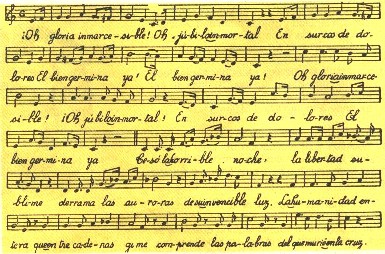 ¡Oh gloria inmarce-si-ble! Oh, jú-bi-loin-mor-tal En surcos de do-
lo-res El bien ger-mi-na ya! El bien ger-mi-na ya! Oh gloriainmarce-
si-ble! ¡Oh jú-bi-loin-mor-tal! En sur-cos de do-lo-res El
bien ger-mi-na ya Ce-só lahorri-ble, no-che, la libertad su-
bli-me derrama las au-ro-ras desuinvencible luz. Lahu-ma-ni-dad en-
te-ra queen tre ca-de-nas gi-me com-prende las pa-la-bras del quemurióenla cruz.